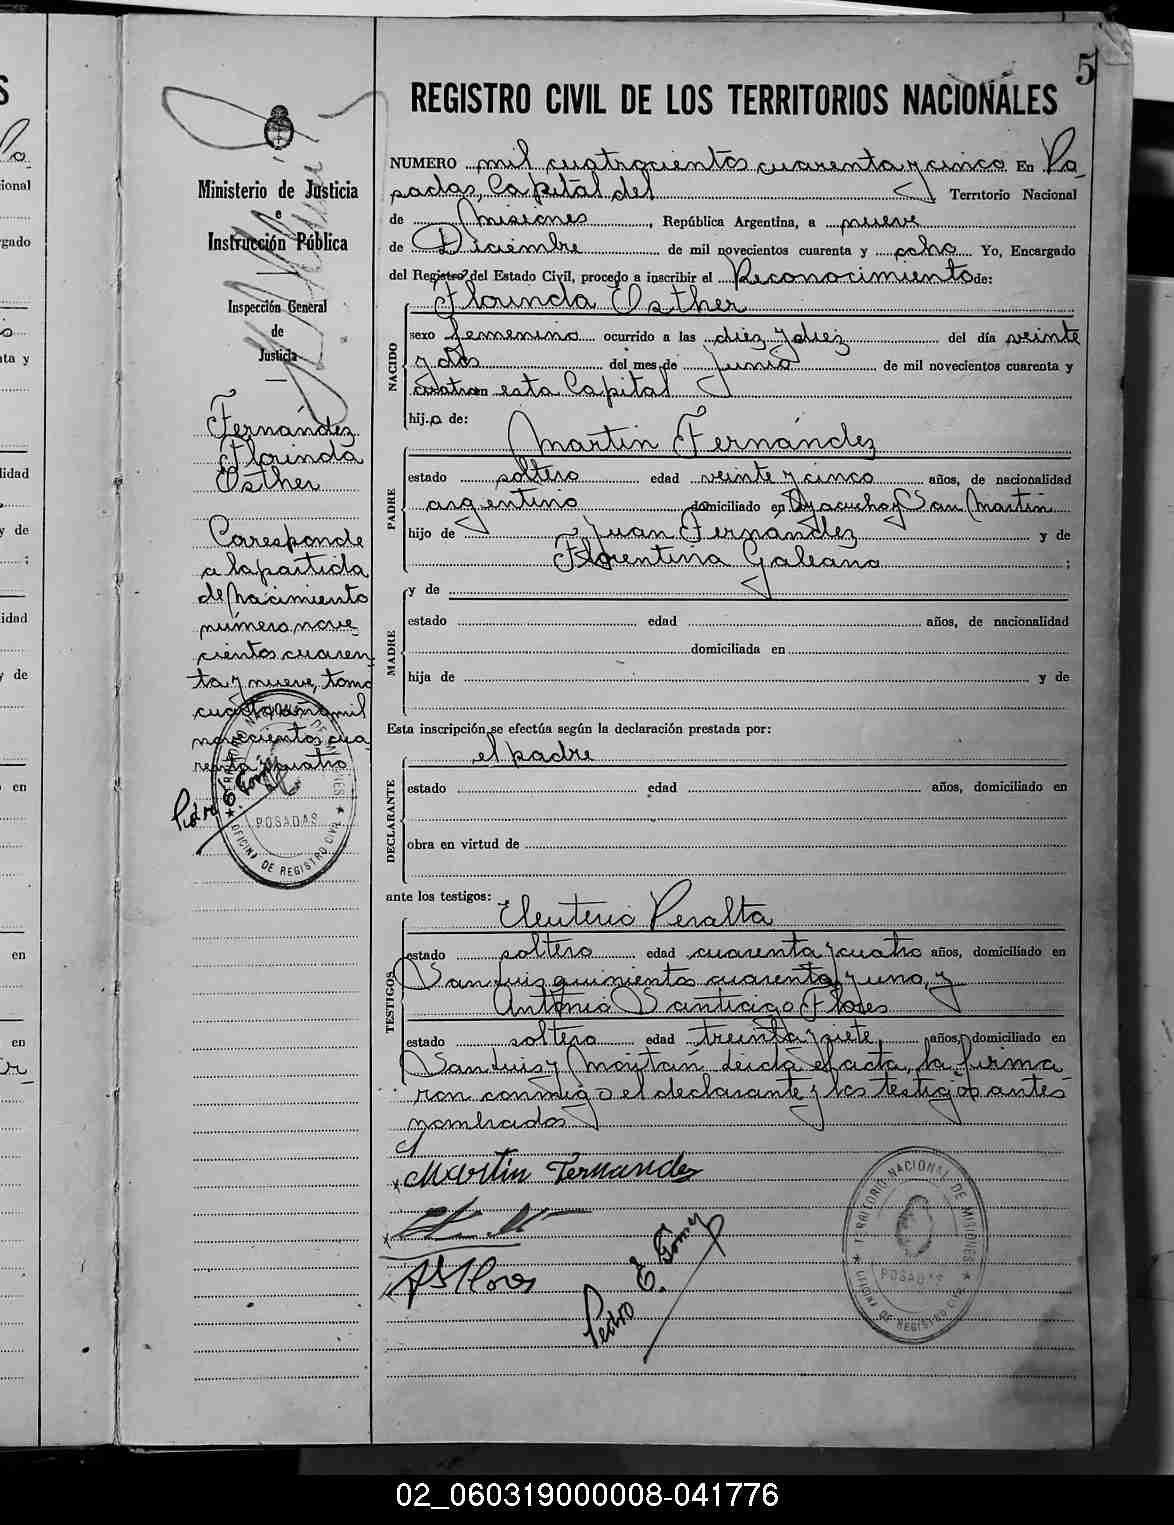 5
REGISTRO CIVIL DE LOS TERRITORIOS NACIONALES
Ministerio de Justicia
e
Instrucción Pública
Inspección General
de
Justicia
Fernández
Florinda
Osther
Coresponde
a la partida
de nacimiento
número nove-
cientos cuaren-
ta y nueve, tomo
cuarto año mil
novecientos cua-
renta y cuatro
Pedro E. Gomez
TERRITORIO NACIONAL DE MISIONES
POSADAS
OFICINA DE REGISTRO CIVIL
NUMERO mil cuatrocientos cuarenta y cinco En Po-
sadas, Capital del Territorio Nacional
de Misiones, República Argentina, a nueve
de Diciembre de mil novecientos cuarenta y ocho Yo, Encargado
del Registro del Estado Civil, procedo a inscribir el Reconocimiento de:
Florinda Osther
NACIDO
sexo femenino ocurrido a las diez y diez del día veinte
y dos del mes de junio de mil novecientos cuarenta y
cuatro en esta Capital
hij.a de:
Martin Fernández
PADRE
estado soltero edad veinte y cinco años, de nacionalidad
argentino domiciliado en Ayacucho y San Martin
hijo de Juan Fernandez y de
Florentina Galeano ;
y de
MADRE
estado edad años, de nacionalidad
domiciliada en
hija de y de
Esta inscripción se efectúa según la declaración prestada por:
el padre
DECLARANTE
estado edad años, domiciliado en
obra en virtud de
ante los testigos:
Eleuterio Peralta
TESTIGOS
estado soltero edad cuarenta y cuatro años, domiciliado en
San Luis quinientos cuarenta y uno, y
Antonio Santiago Flores
estado soltero edad treinta y siete, años, domiciliado en
San Luis y Moritán leida el acta, la firma
ron conmigo el declarante y los testigos antes
nombrados
Martin Fernandez
A S Flores
Pedro E. Gomez
TERRITORIO NACIONAL DE MISIONES
POSADAS
OFICINA DE REGISTRO CIVIL
02_060319000008-041776